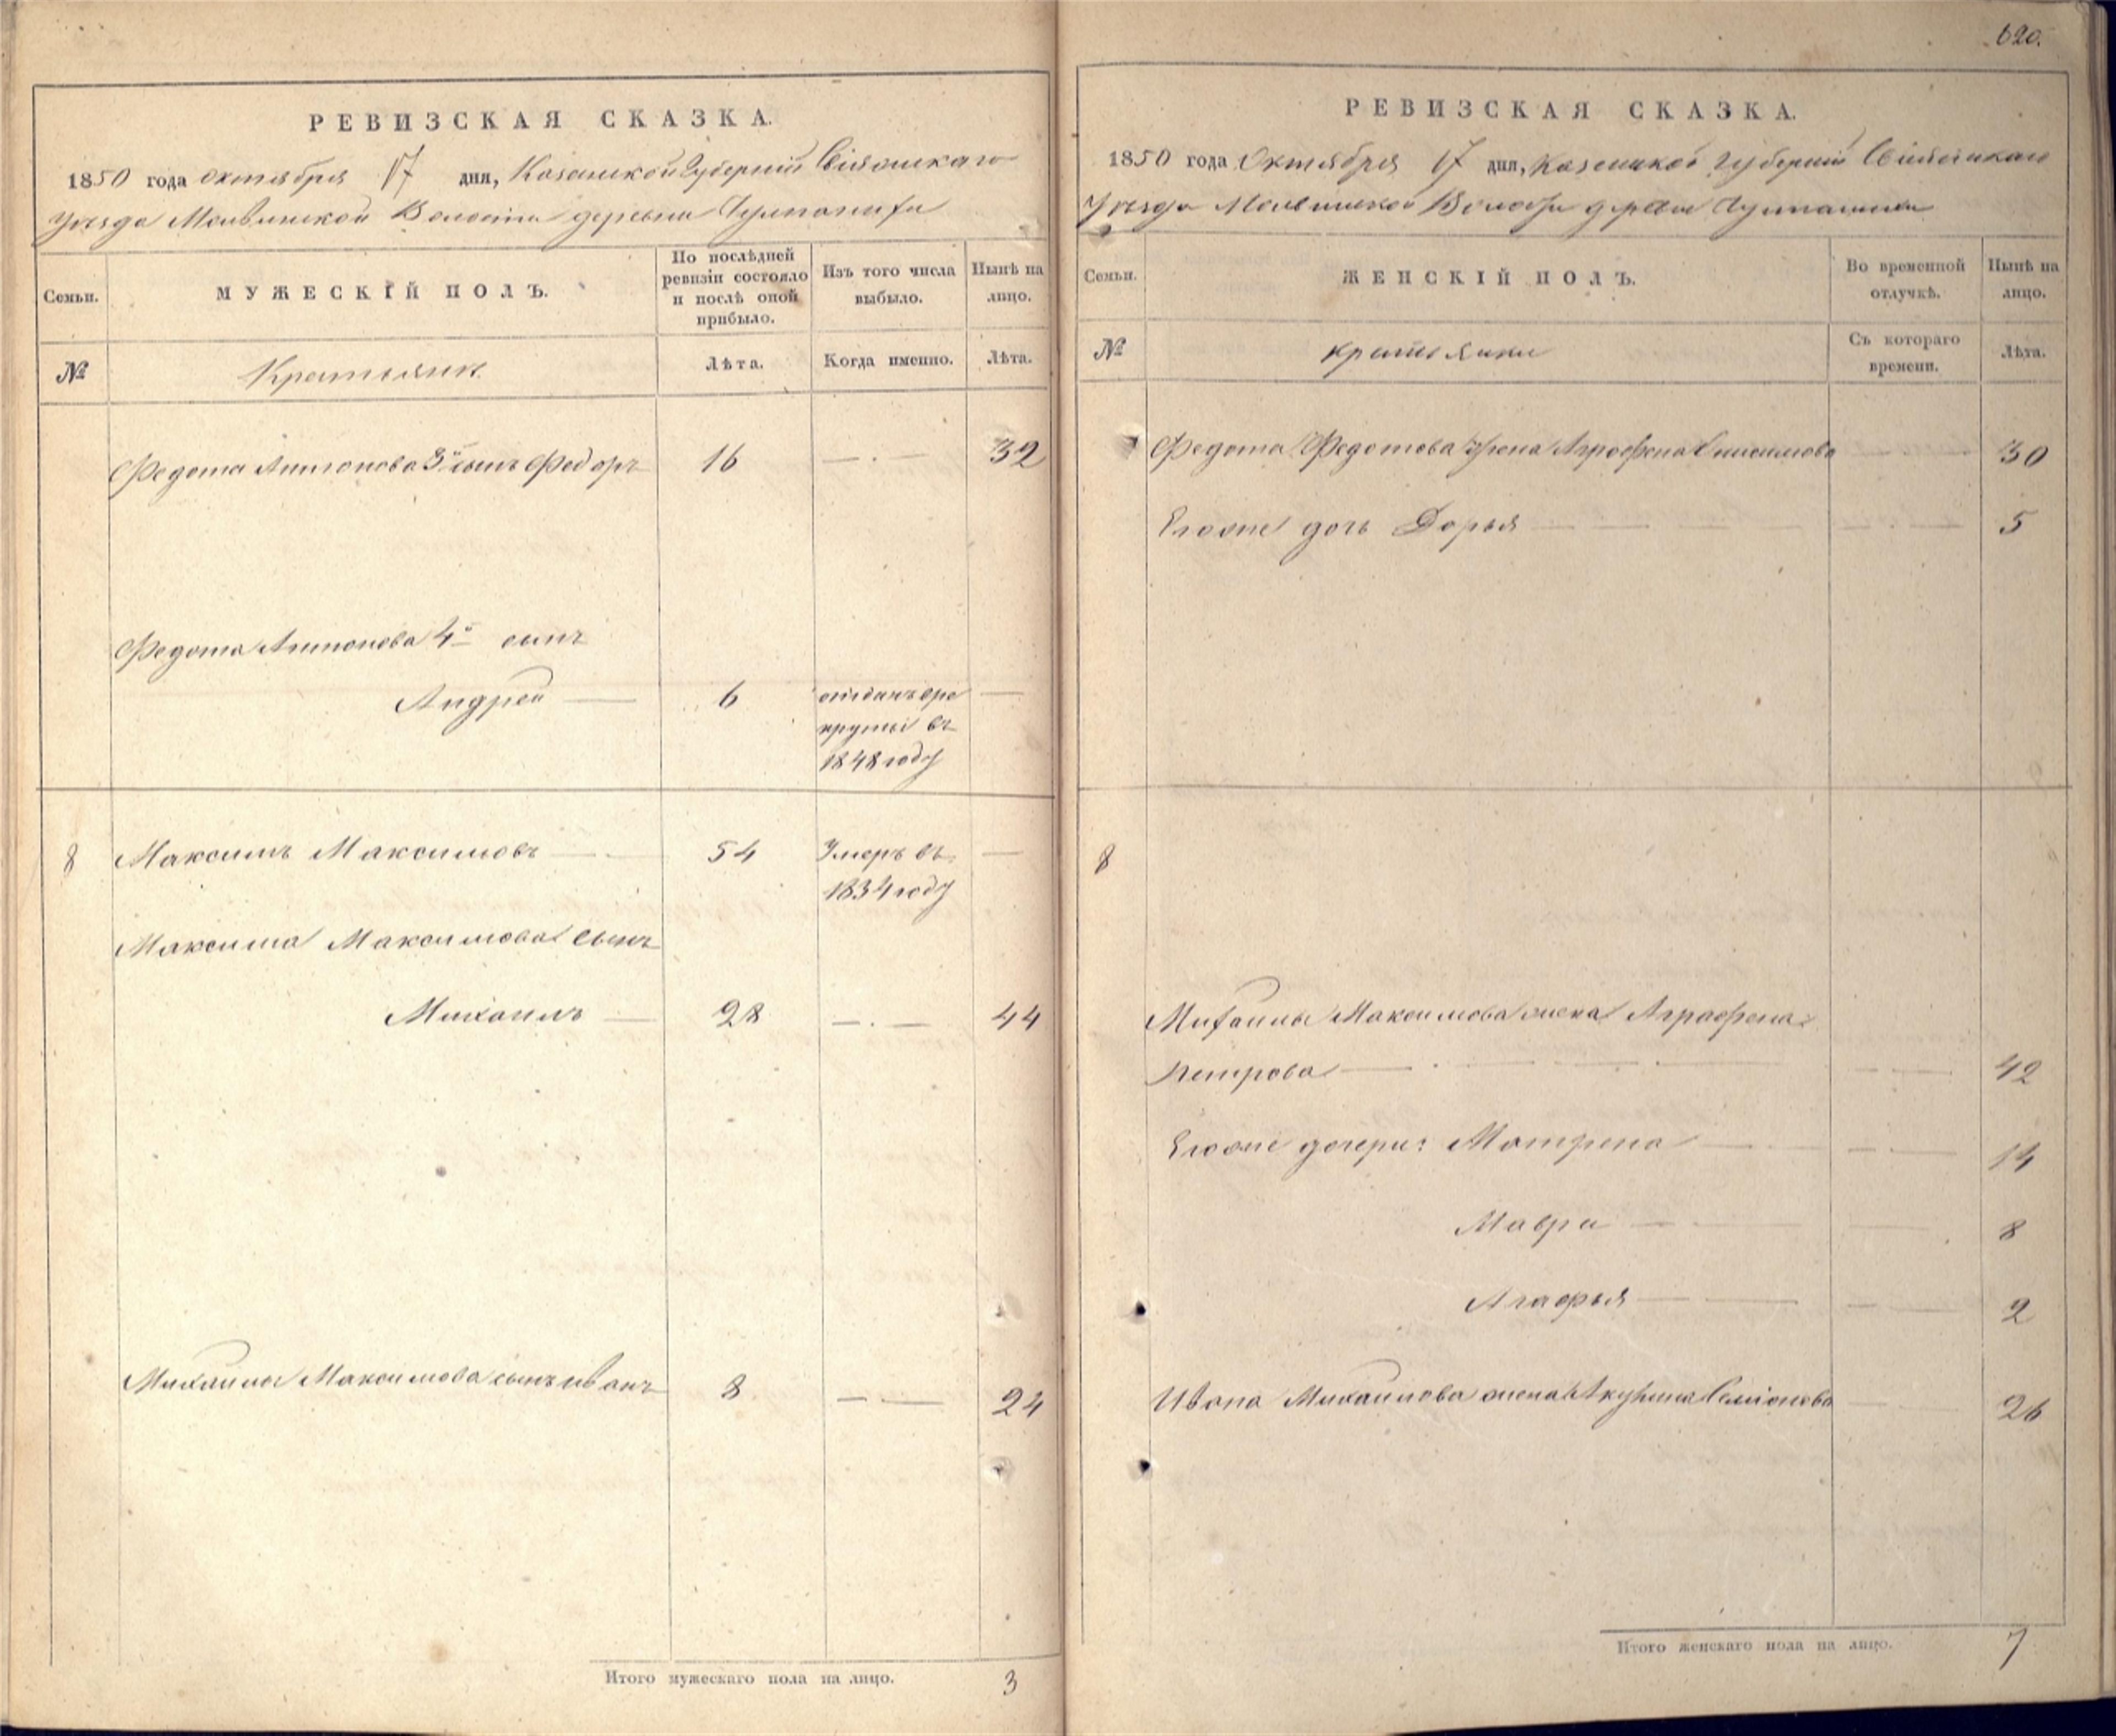 620.
РЕВИЗСКАЯ СКАЗКА.
1850 года октября 17 дня, Казанской Губерніи Свіяжскаго
Уѣзда Молвинской Волости деревни
Семьи.
МУЖЕСКІЙ ПОЛЪ.
По послѣдней ревизіи состояло и послѣ оной прибыло.
Изъ того числа выбыло.
Нынѣ на лицо.
№
Крестьяне
Лѣта.
Когда именно.
Лѣта.
Федота Антонова 3й сынъ Федоръ 16 — . — 32
Федота Антонова 4й сынъ
Андрей — 6 отданъ вре —
круты въ
1848 году
8 Максимъ Максимовъ — 54 Умеръ въ —
1834 году
Максима Максимова сынъ
Михаилъ — 28 — . — 44
Михаилы Максимова сынъ Иванъ 8 — . — 24
Итого мужескаго пола на лицо. 3
РЕВИЗСКАЯ СКАЗКА.
1850 года Октября 17 дня, Казанской Губерніи Свіяжскаго
Уѣзда Молвинской Волости деревни
Семьи.
ЖЕНСКІЙ ПОЛЪ.
Во временной отлучкѣ.
Нынѣ на лицо.
№
крестьянки
Съ котораго времени.
Лѣта.
7 Федота Федотова жена Аграфена 30
Егоже дочь Дарья — — 5
8
Михаилы Максимова жена Аграфена
Петрова — 42
Егоже дочери: Матрена — 14
Мавра — 8
Агафья — 2
Ивана Михаилова жена Акулина Семіонова 26
Итого женскаго пола на лицо. 7